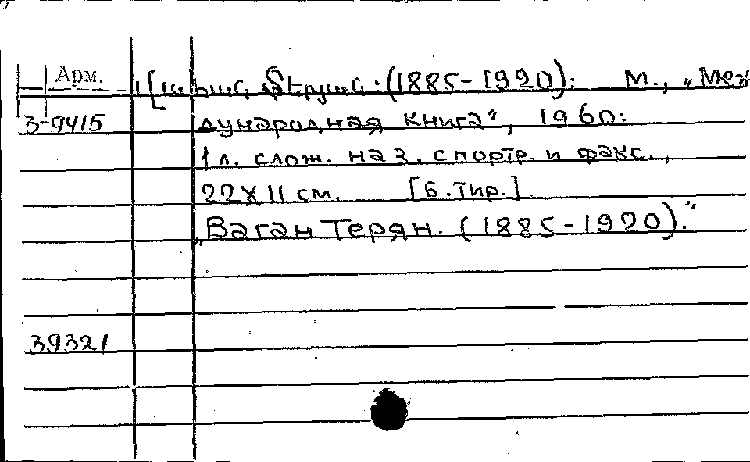 Арм. Վահան Տերյան (1885-1920): М., „Меж
3-7415 дународная книга", 1960:
1 л. слож. на 3. с портр. и факс.,
22x11 см. [Б. тир.].
„Ваган Терян. (1885-1920)."
39321